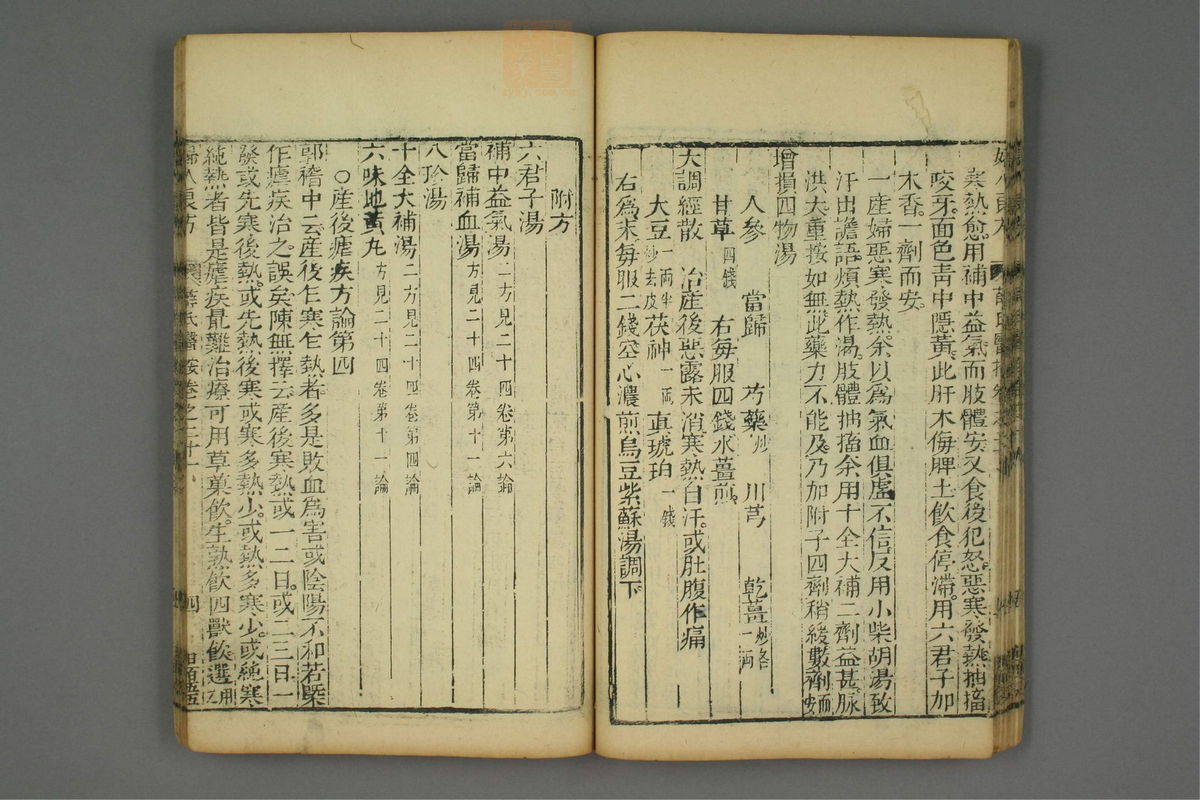 寒熱愈用補中益氣而肢體安又食後犯怒惡寒發熱抽搐
咬牙面色青中隱黃此肝木侮脾土飲食停滯用六君子加
木香一劑而安
一產婦惡寒發熱余以爲氣血俱虛不信反用小柴胡湯致
汗出譫語煩熱作渴肢體抽搐余用十全大補二劑益甚脈
洪大重按如無此藥力不能及乃加附子四劑稍緩數劑而安
增損四物湯
人參 當歸 芍藥炒 川芎 乾薑炒各一兩
甘草四錢 右每服四錢水薑煎
大調經散 治產後惡露未消寒熱自汗或肚腹作痛
大豆一兩半炒去皮 茯神一兩 真琥珀一錢
右爲末每服二錢空心濃煎烏豆紫蘇湯調下
附方
六君子湯
補中益氣湯二方見二十四卷第六論
當歸補血湯方見二十四卷第十一論
八珍湯
十全大補湯二方見二十四卷第四論
六味地黃丸方見二十四卷第十一論
○產後瘧疾方論第四
郭稽中云產後乍寒乍熱者多是敗血爲害或陰陽不和若槩
作瘧疾治之誤矣陳無擇云產後寒熱或一二日或二三日一
發或先寒後熱或先熱後寒或寒多熱少或熱多寒少或純寒
純熱者皆是瘧疾最難治療可用草菓飲生熟飲四獸飲選用
婦人良方 薛氏醫按卷之二十一 四